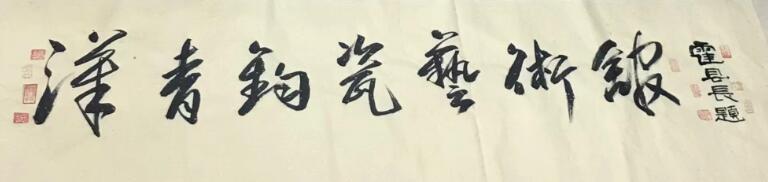 漢青鈞瓷藝術館
霍县長題